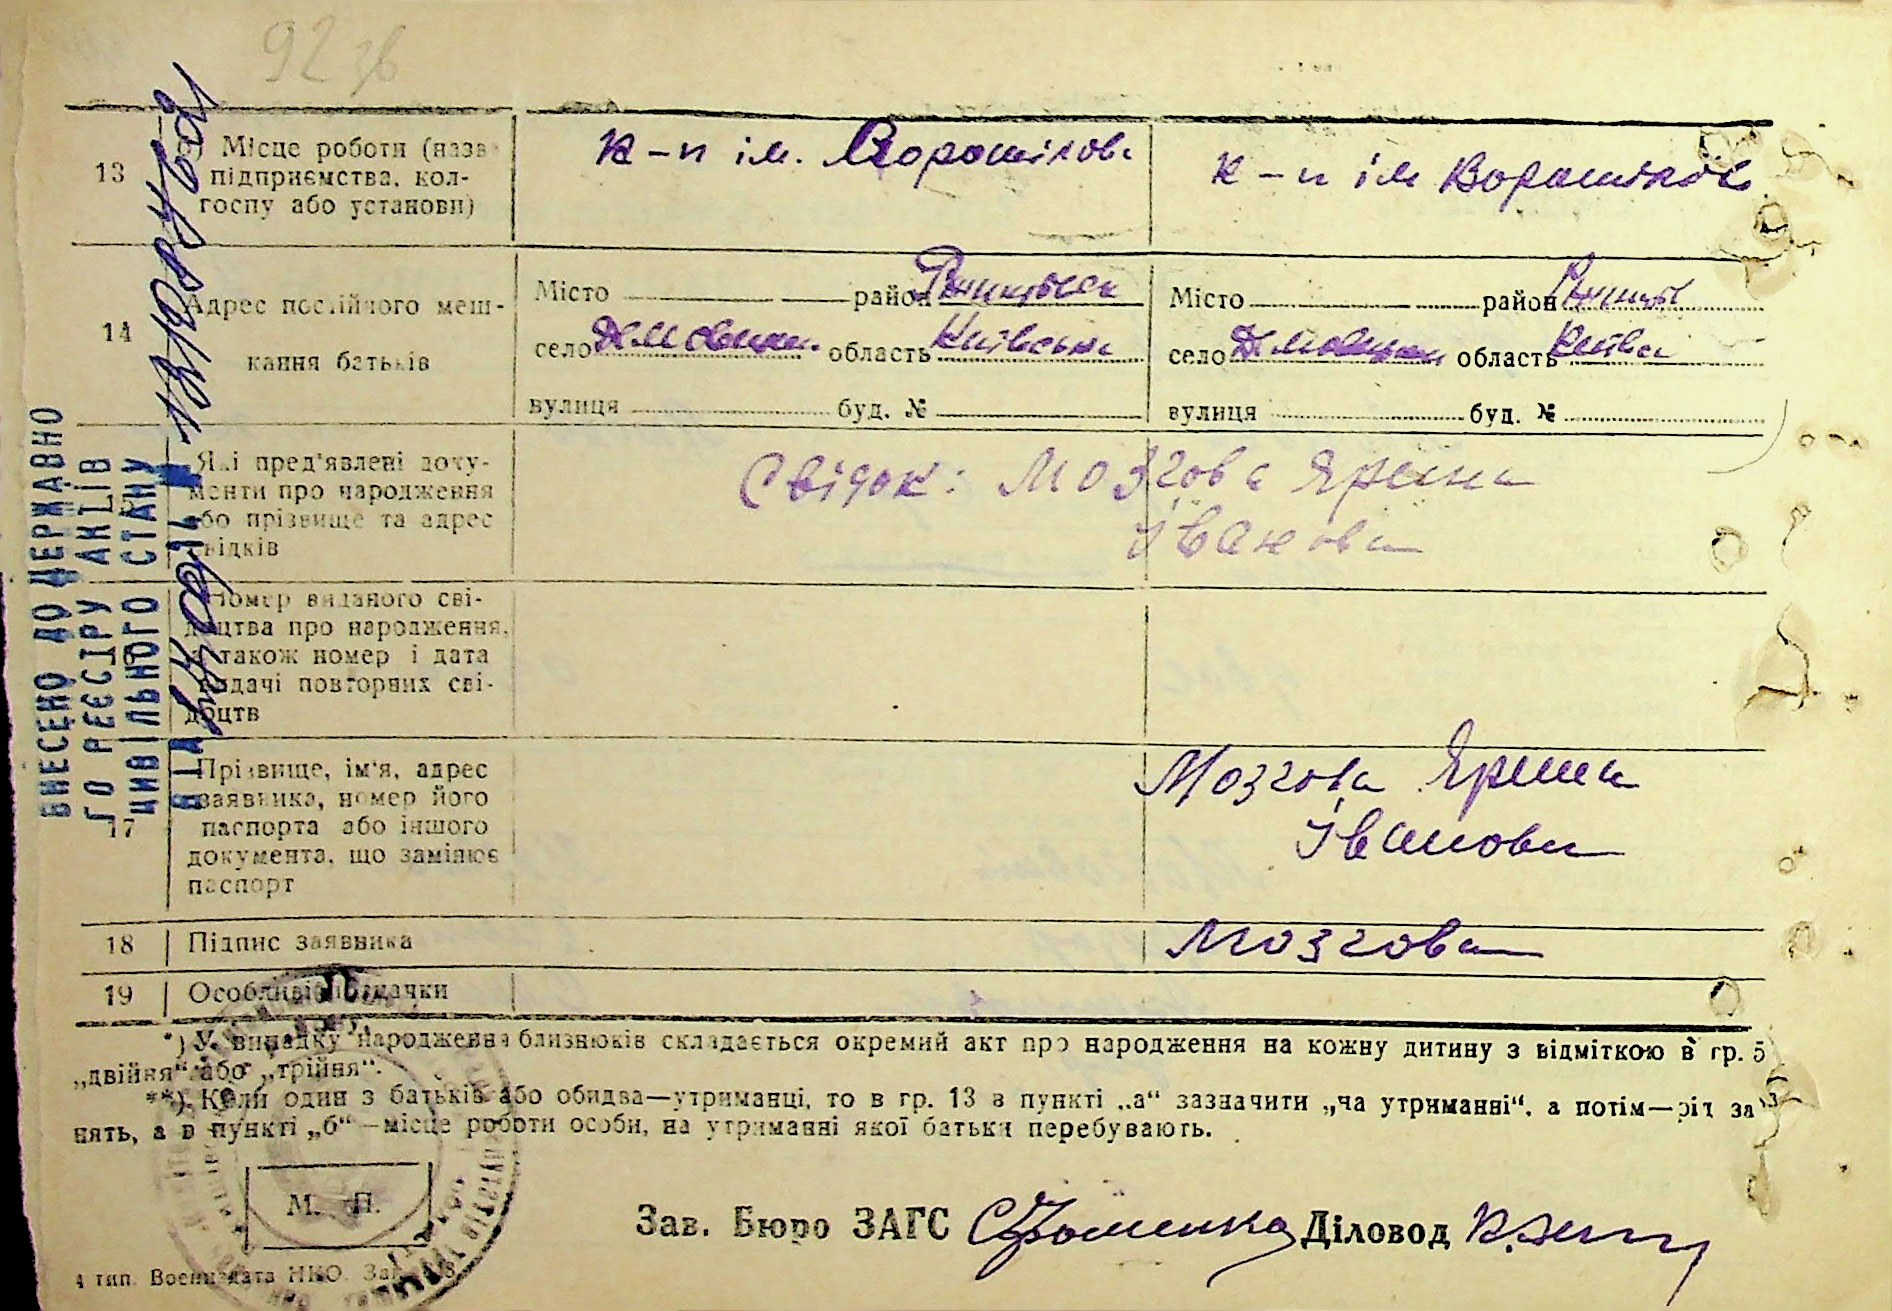 92 зв
13
б) Місце роботи (назва
підприємства, кол-
госпу або установи)
к-п ім. Ворошілова
к-п ім Ворошілова
14
Адрес постійного меш-
кання батьків
Місто район
село область Київська
вулиця буд. №
Місто район
село область
вулиця буд. №
Які пред'явлені доку-
менти про народження
або прізвище та адрес
свідків
Свідок: Мозгова Ярина
Іванова
Номер виданого сві-
доцтва про народження,
а також номер і дата
видачі повторних сві-
доцтв
17
Прізвище, ім'я, адрес
заявника, номер його
паспорта або іншого
документа, що заміняє
паспорт
Мозгова Ярина
Іванова
18 Підпис заявника
Мозгова
19 Особливі значки
*) У випадку народження близнюків складається окремий акт про народження на кожну дитину з відміткою в гр. 5
„двійня“ або „трійня“.
**) Коли один з батьків або обидва—утриманці, то в гр. 13 в пункті „а“ зазначити „на утриманні“, а потім—рід за
нять, а в пункті „б“—місце роботи особи, на утриманні якої батьки перебувають.
М. П.
Зав. Бюро ЗАГС Фоменко Діловод
4 тип. Воениздата НКО. Зак.
ВНЕСЕНО ДО ДЕРЖАВНО
ГО РЕЄСТРУ АКТІВ
ЦИВІЛЬНОГО СТАНУ